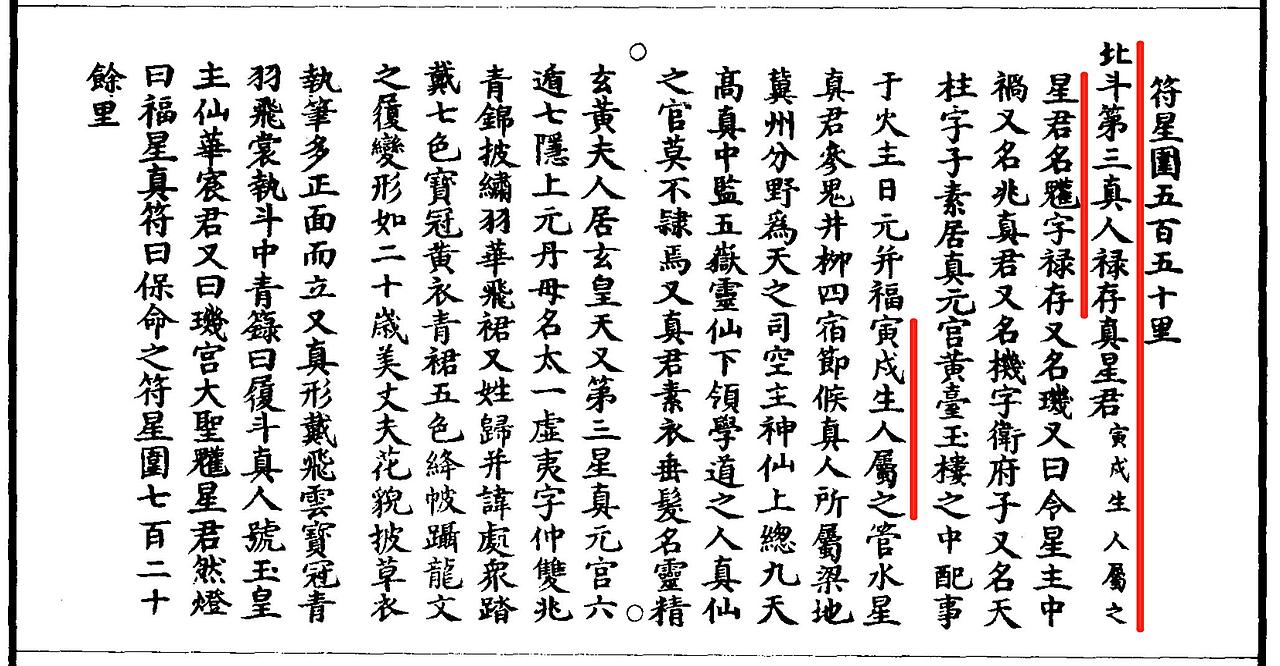 符星圍五百五十里
北斗第三真人禄存真星君寅戍生人屬之
星君名䰢字禄存又名璣又曰令星主中
禍又名兆真君又名機字衛府子又名天
柱字子素居真元宮黄臺玉樓之中配事
于火主日元并福寅戍生人屬之管水星
真君參鬼井栁四宿節候真人所屬梁地
冀州分野爲天之司空主神仙上緫九天
髙真中監五嶽靈仙下領學道之人真仙
之官莫不隸焉又真君素衣垂髮名靈精
玄黄夫人居玄皇天又第三星真元宮六
遁七隱上元丹母名太一虚夷字仲雙兆
青錦披繡羽華飛裙又姓歸并諱處衆踏
戴七色寶冠黄衣青裙五色絳帔躡龍文
之履變形如二十歲美丈夫花貌披草衣
執筆多正面而立又真形戴飛雲寶冠青
羽飛裳執斗中青籙曰履斗真人號玉皇
主仙華宸君又曰璣宮大聖䰢星君然燈
曰福星真符曰保命之符星圍七百二十
餘里